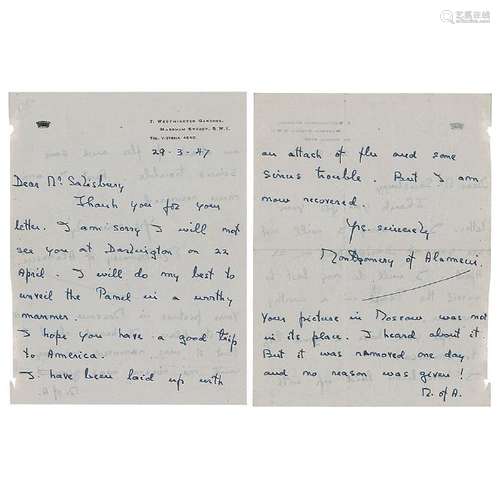 7, WESTMINSTER GARDENS,
MARSHAM STREET, S.W.1.
TEL. VICTORIA
29-3-47
Dear Mr Salisbury
Thank you for your
letter. I am sorry I will not
see you at Darlington on 22
April. I will do my best to
unveil the Panel in a worthy
manner.
I hope you have a good trip
to America.
I have been laid up with
an attack of flu and some
sinus trouble. But I am
now recovered.
Yrs. sincerely
Montgomery of Alamein.
Your picture in Moscow was not
in its place. I heard about it
But it was removed one day
and no reason was given!
M. of A.